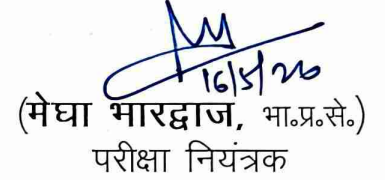 16/5/26
(मेघा भारद्वाज, भा॰प्र॰से॰)
परीक्षा नियंत्रक